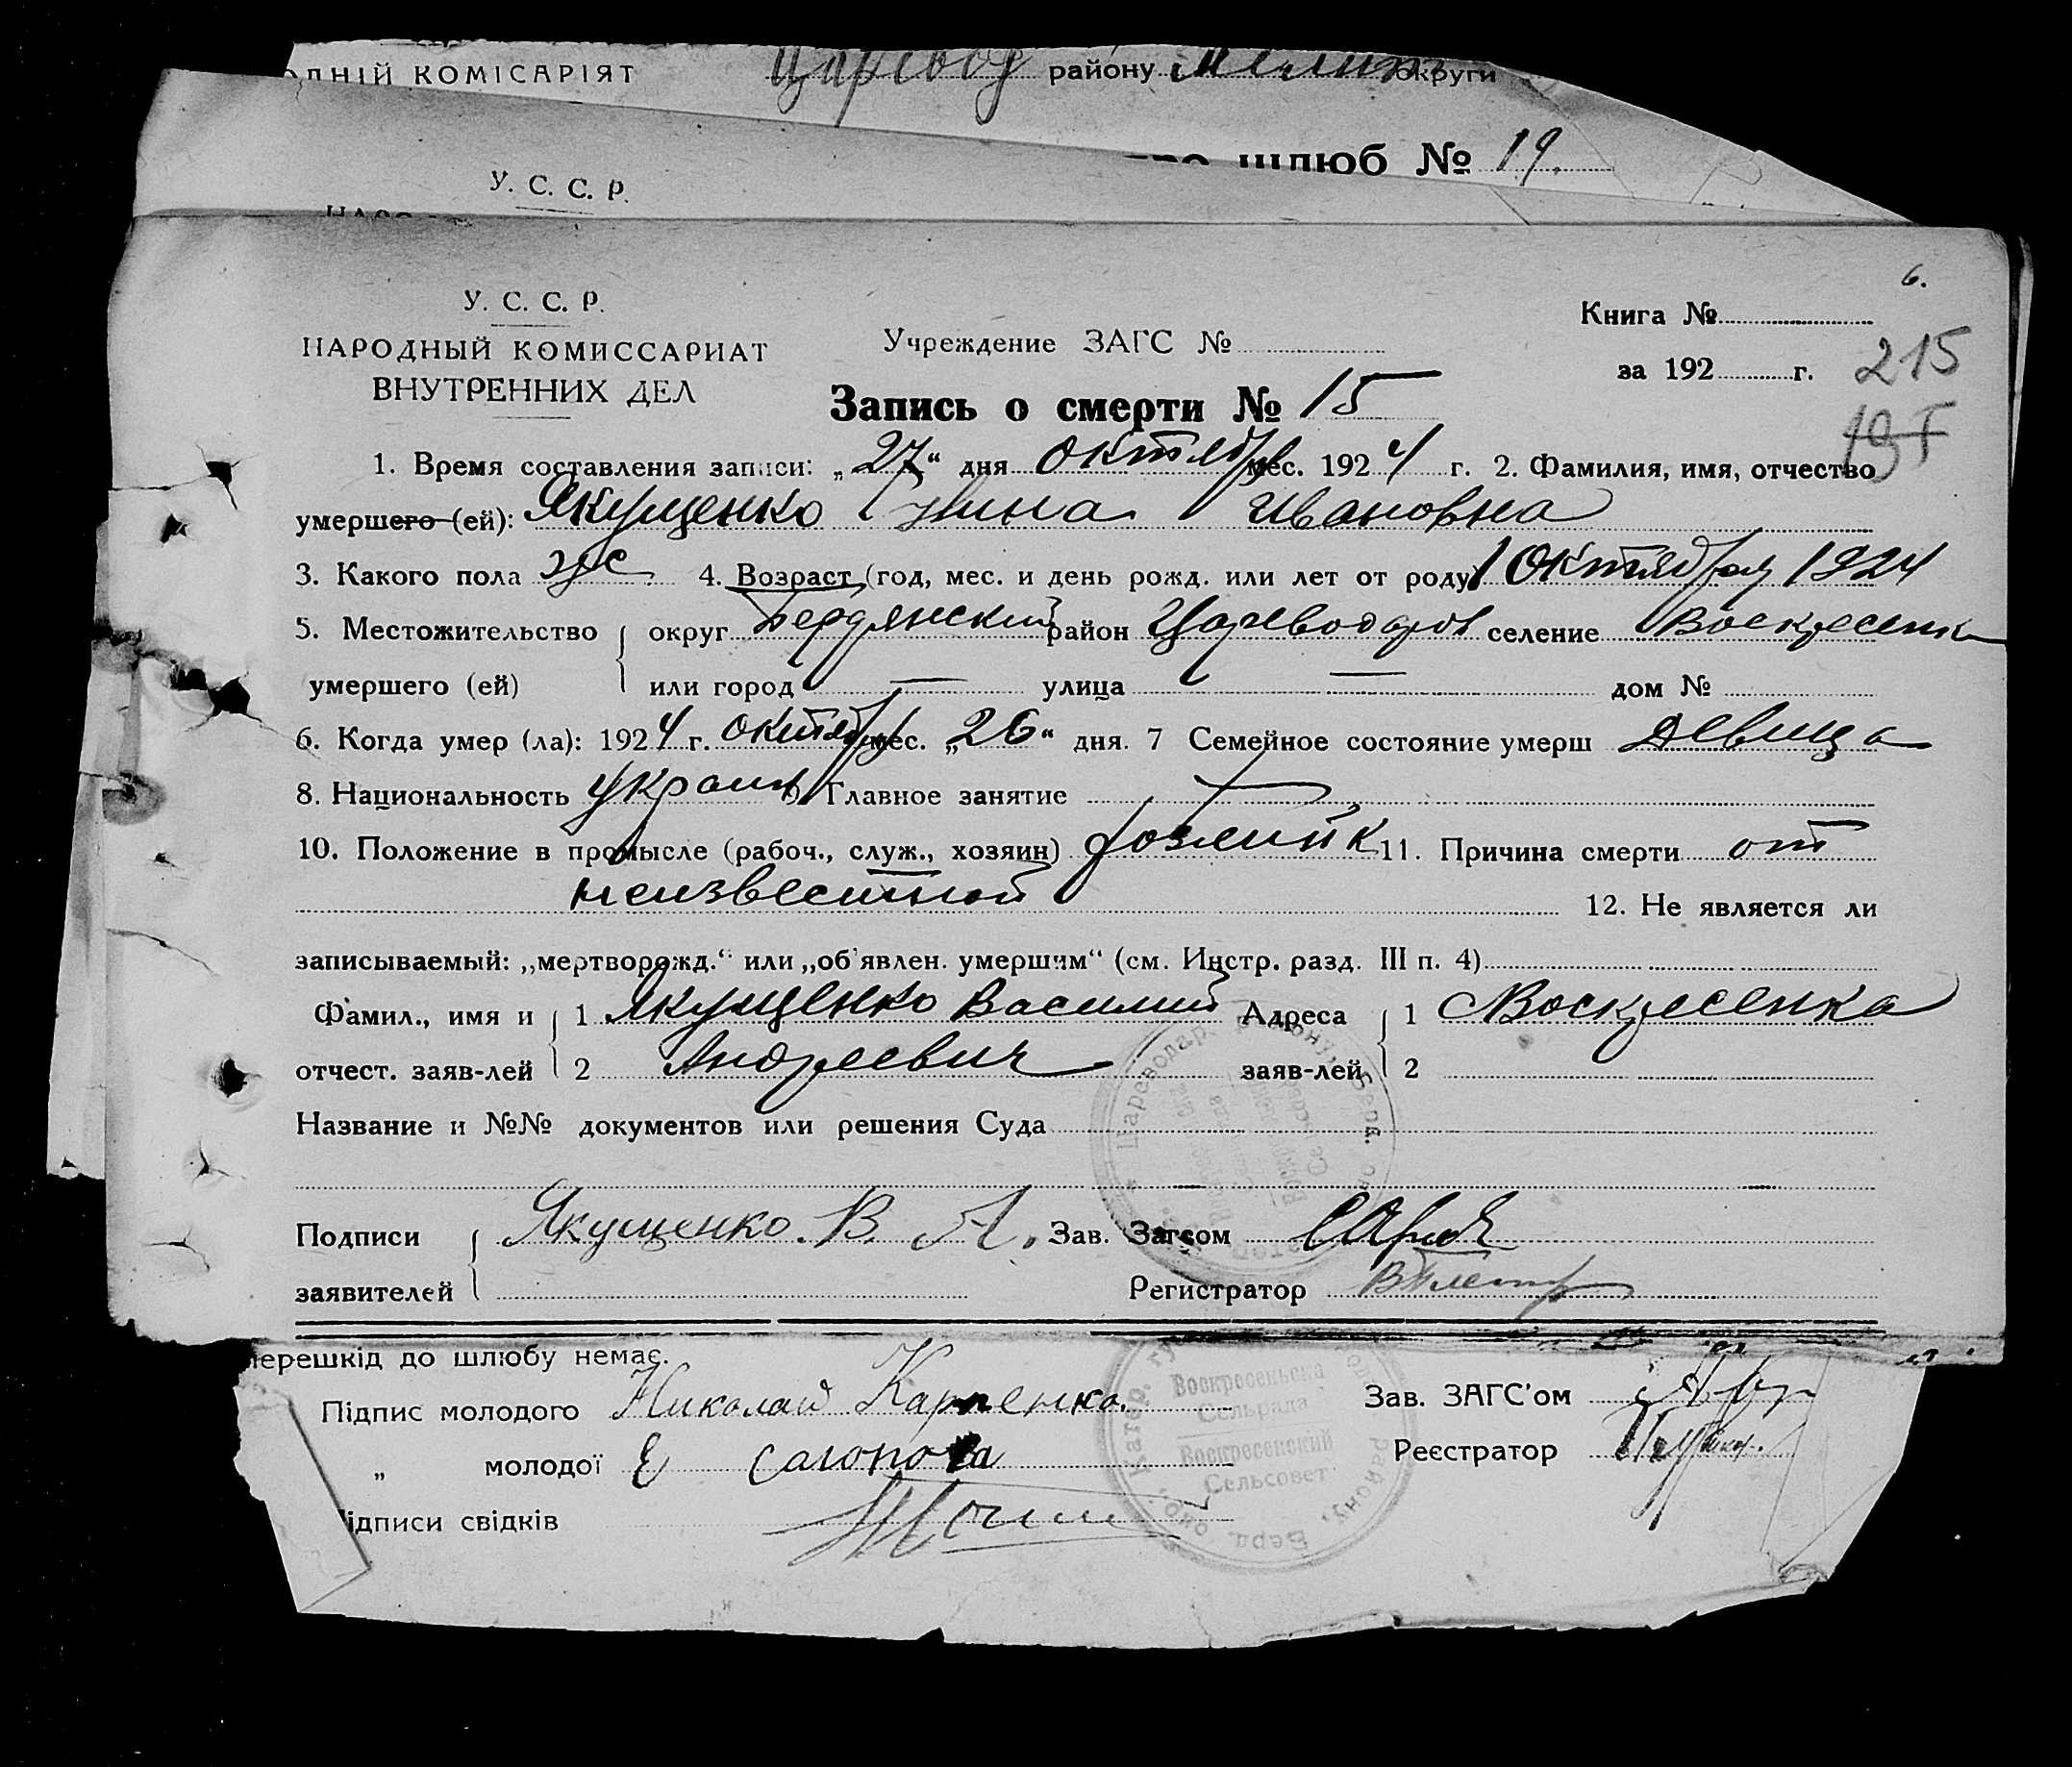 ОДНІЙ КОМІСАРІЯТ Царевод району Мелит округи
шлюб № 19.
У. С. С. Р.
6.
У. С. С. Р.
НАРОДНЫЙ КОМИССАРИАТ
ВНУТРЕННИХ ДЕЛ
Учреждение ЗАГС №
Книга №
за 192 г. 215
Запись о смерти № 15
1. Время составления записи: „27“ дня октября мес. 1924 г. 2. Фамилия, имя, отчество
умершего (ей): Якущенко Нина Ивановна
3. Какого пола жс 4. Возраст (год, мес. и день рожд. или лет от роду) 1 Октября 1924
5. Местожительство округ Бердянский район Цареводаров селение Воскресенка
умершего (ей) или город — улица — дом №
6. Когда умер (ла): 1924 г. октября мес. „26“ дня. 7 Семейное состояние умерш девица
8. Национальность украин 9. Главное занятие
10. Положение в промысле (рабоч., служ., хозяин) 11. Причина смерти от
неизвестной 12. Не является ли
записываемый: „мертворожд.“ или „об'явлен. умершим“ (см. Инстр. разд. III п. 4)
Фамил., имя и 1 Якущенко Василий Адреса 1 Воскресенка
отчест. заяв-лей 2 Андреевич заяв-лей 2
Название и №№ документов или решения Суда
Подписи Якущенко. В. А. Зав. Загсом
заявителей Регистратор
перешкід до шлюбу немає.
Підпис молодого Николай Карпенко. Зав. ЗАГС'ом
„ молодої Реєстратор
ідписи свідків
Воскресенська
Сельрада
Воскресенский
Сельсовет